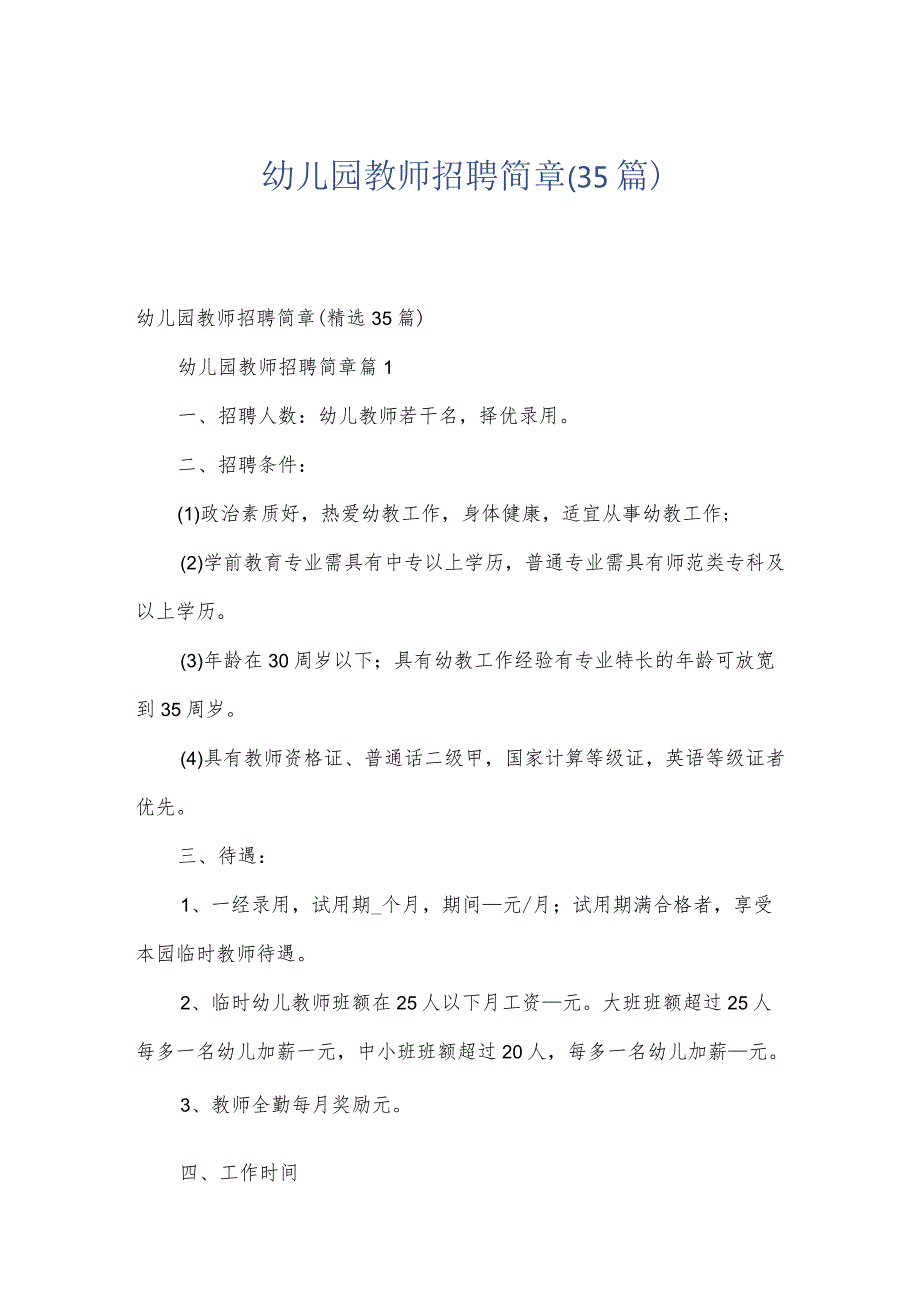 幼儿园教师招聘简章(35篇)
幼儿园教师招聘简章(精选35篇)
幼儿园教师招聘简章篇1
一、招聘人数：幼儿教师若干名，择优录用。
二、招聘条件：
(1)政治素质好，热爱幼教工作，身体健康，适宜从事幼教工作；
(2)学前教育专业需具有中专以上学历，普通专业需具有师范类专科及
以上学历。
(3)年龄在30周岁以下；具有幼教工作经验有专业特长的年龄可放宽
到35周岁。
(4)具有教师资格证、普通话二级甲，国家计算等级证，英语等级证者
优先。
三、待遇：
1、一经录用，试用期_个月，期间—元/月；试用期满合格者，享受
本园临时教师待遇。
2、临时幼儿教师班额在25人以下月工资—元。大班班额超过25人
每多一名幼儿加薪一元，中小班班额超过20人，每多一名幼儿加薪—元。
3、教师全勤每月奖励元。
四、工作时间